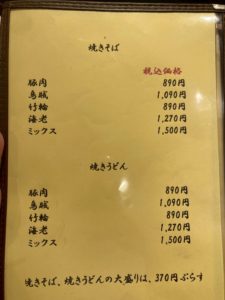 焼きそば
税込価格
豚肉 890円
烏賊 1,090円
竹輪 890円
海老 1,270円
ミックス 1,500円
焼きうどん
豚肉 890円
烏賊 1,090円
竹輪 890円
海老 1,270円
ミックス 1,500円
焼きそば、焼きうどんの大盛りは、370円ぷらす